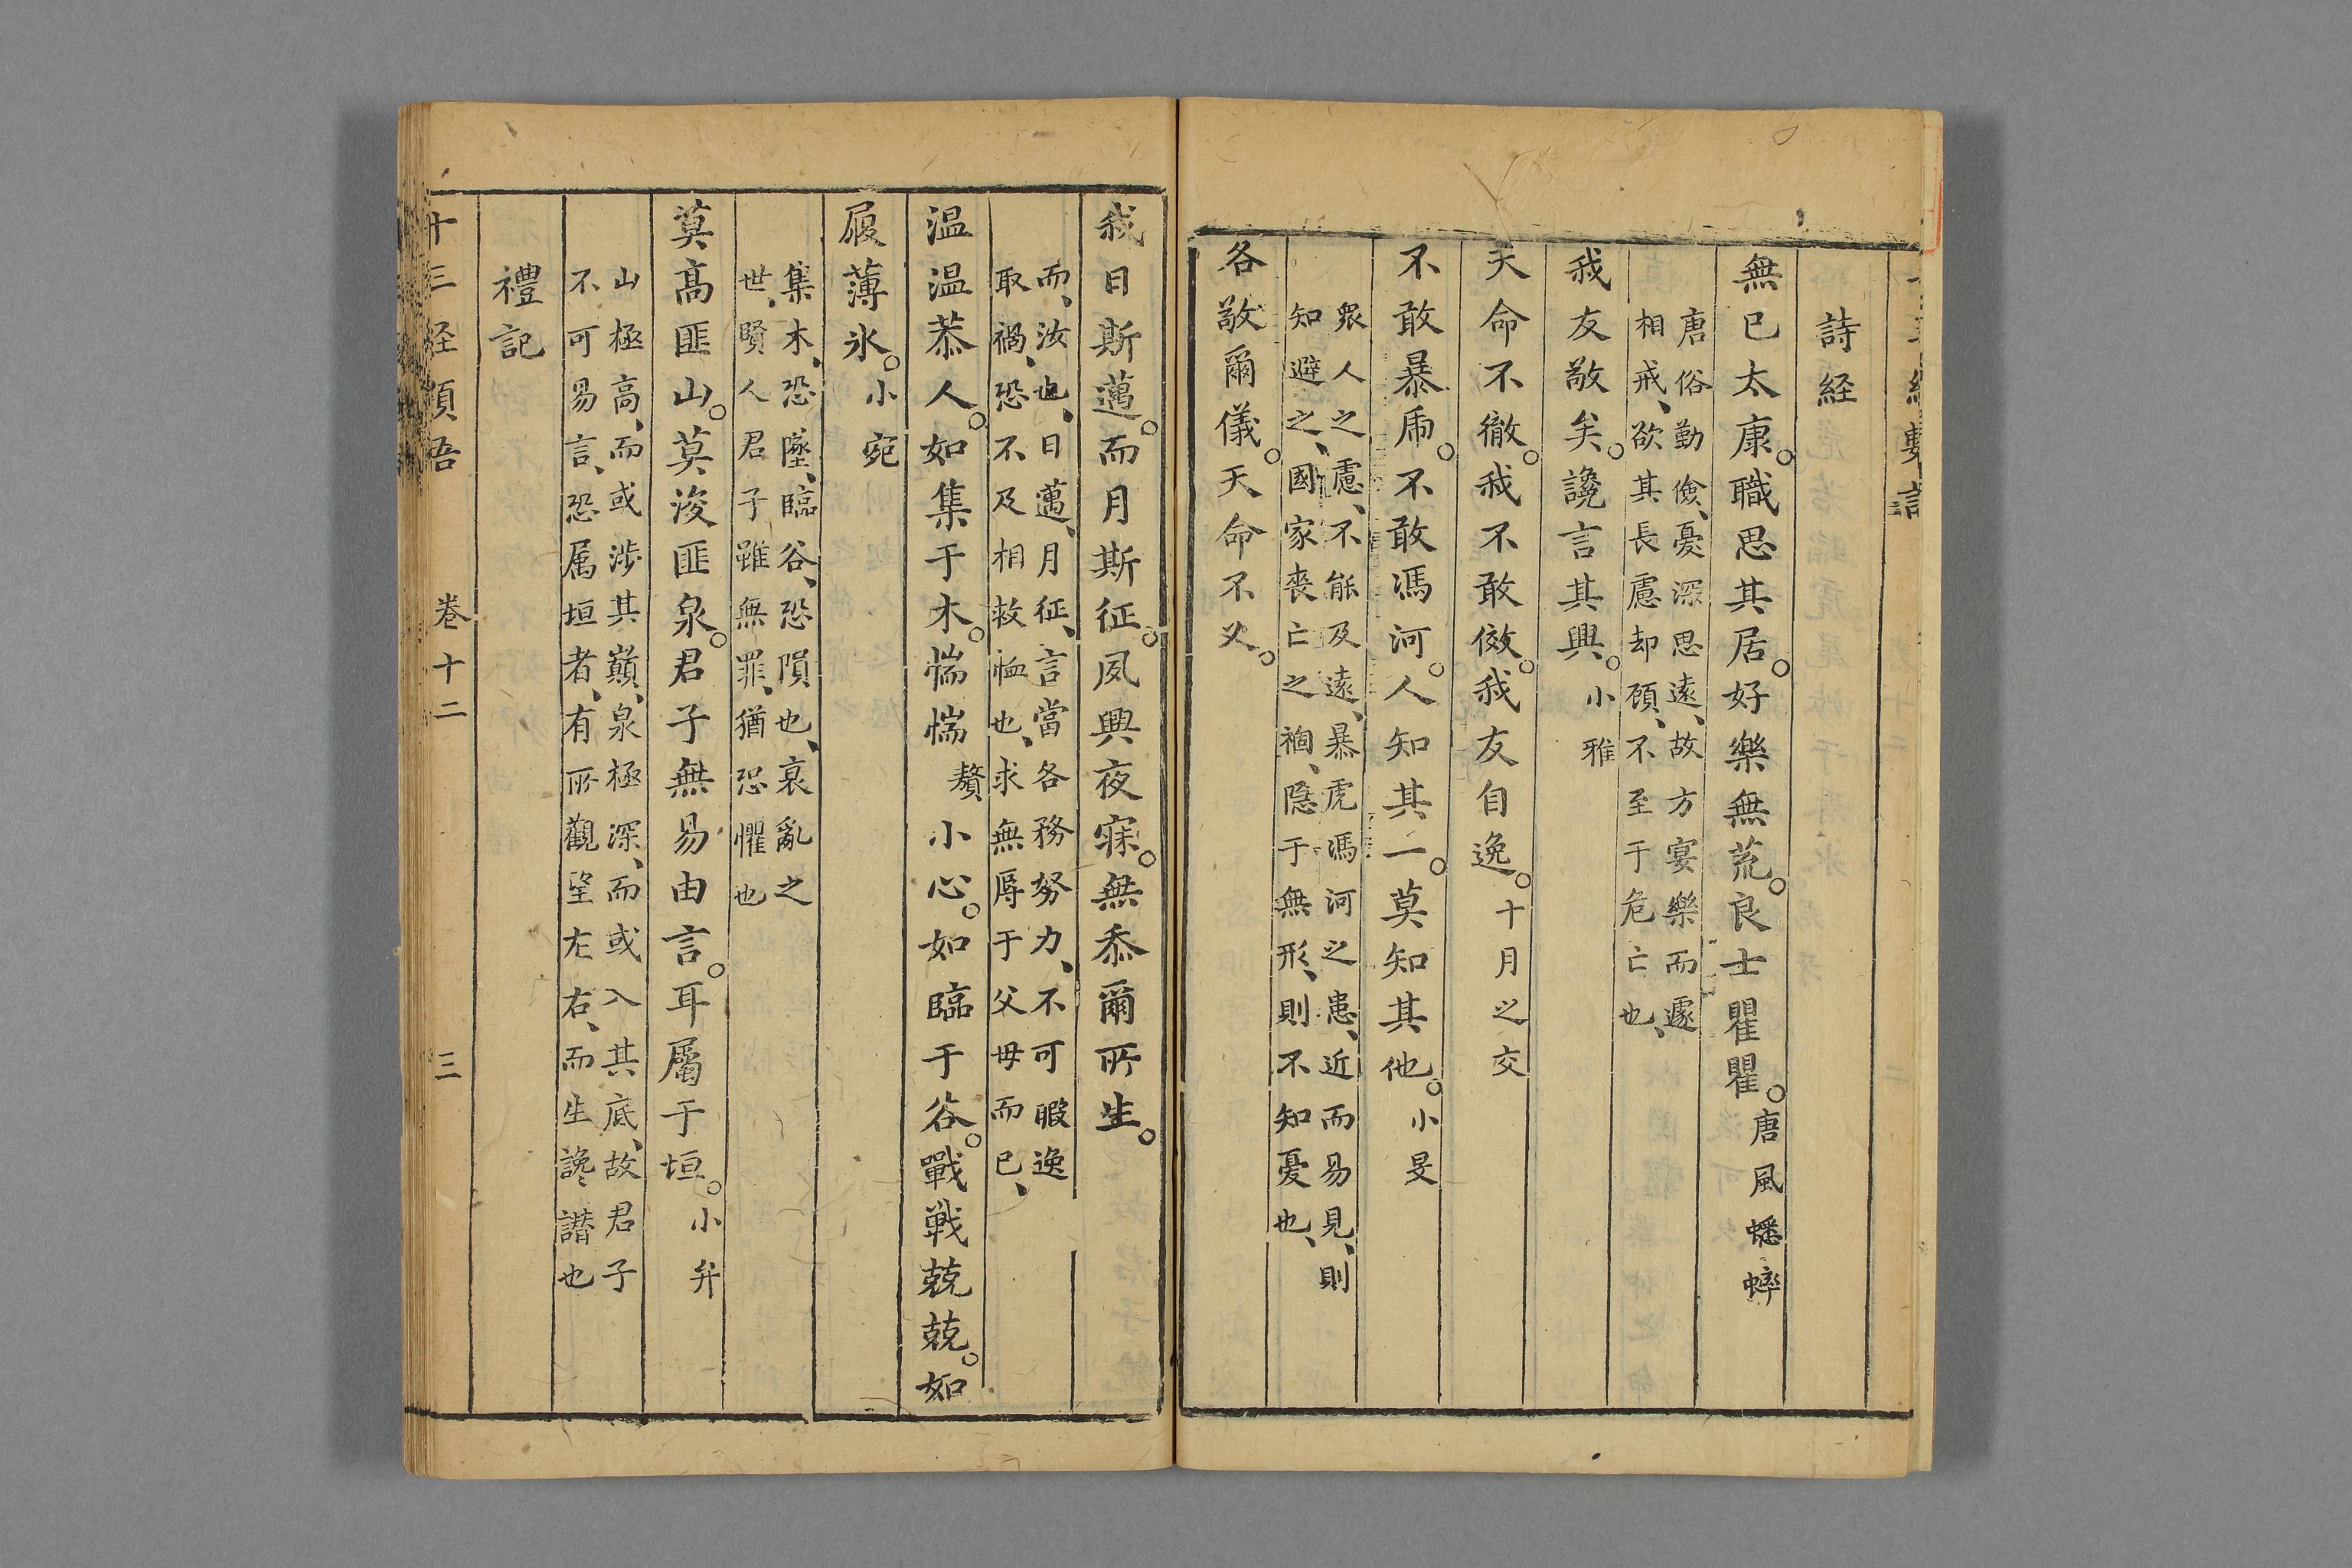 詩経
無已太康。職思其居。好樂無荒。良士瞿瞿。唐風蟋蟀
唐俗勤儉、憂深思遠、故方宴樂而遽
相戒、欲其長慮却顧、不至于危亡也、
我友敬矣。讒言其興。小雅
天命不徹。我不敢傚。我友自逸。十月之交
不敢暴虎。不敢馮河。人知其一。莫知其他。小旻
衆人之慮、不能及遠、暴虎馮河之患、近而易見、則
知避之、國家喪亡之禍、隠于無形、則不知憂也、
各敬爾儀。天命不又。
我日斯邁。而月斯征。夙興夜寐。無忝爾所生。
而、汝也、日邁、月征、言當各務努力、不可暇逸
取禍、恐不及相救恤也、求無辱于父母而已、
温温恭人。如集于木。惴惴小心。如臨于谷。戰戰兢兢。如
履薄氷。小宛
集木、恐墜、臨谷、恐隕也、衰亂之
世、賢人君子雖無罪、猶恐懼也
莫髙匪山。莫浚匪泉。君子無易由言。耳屬于垣。小弁
山極高、而或渉其巔、泉極深、而或入其底、故君子
不可易言、恐属垣者、有所觀望左右、而生讒譖也
禮記
十三経 卷十二 三